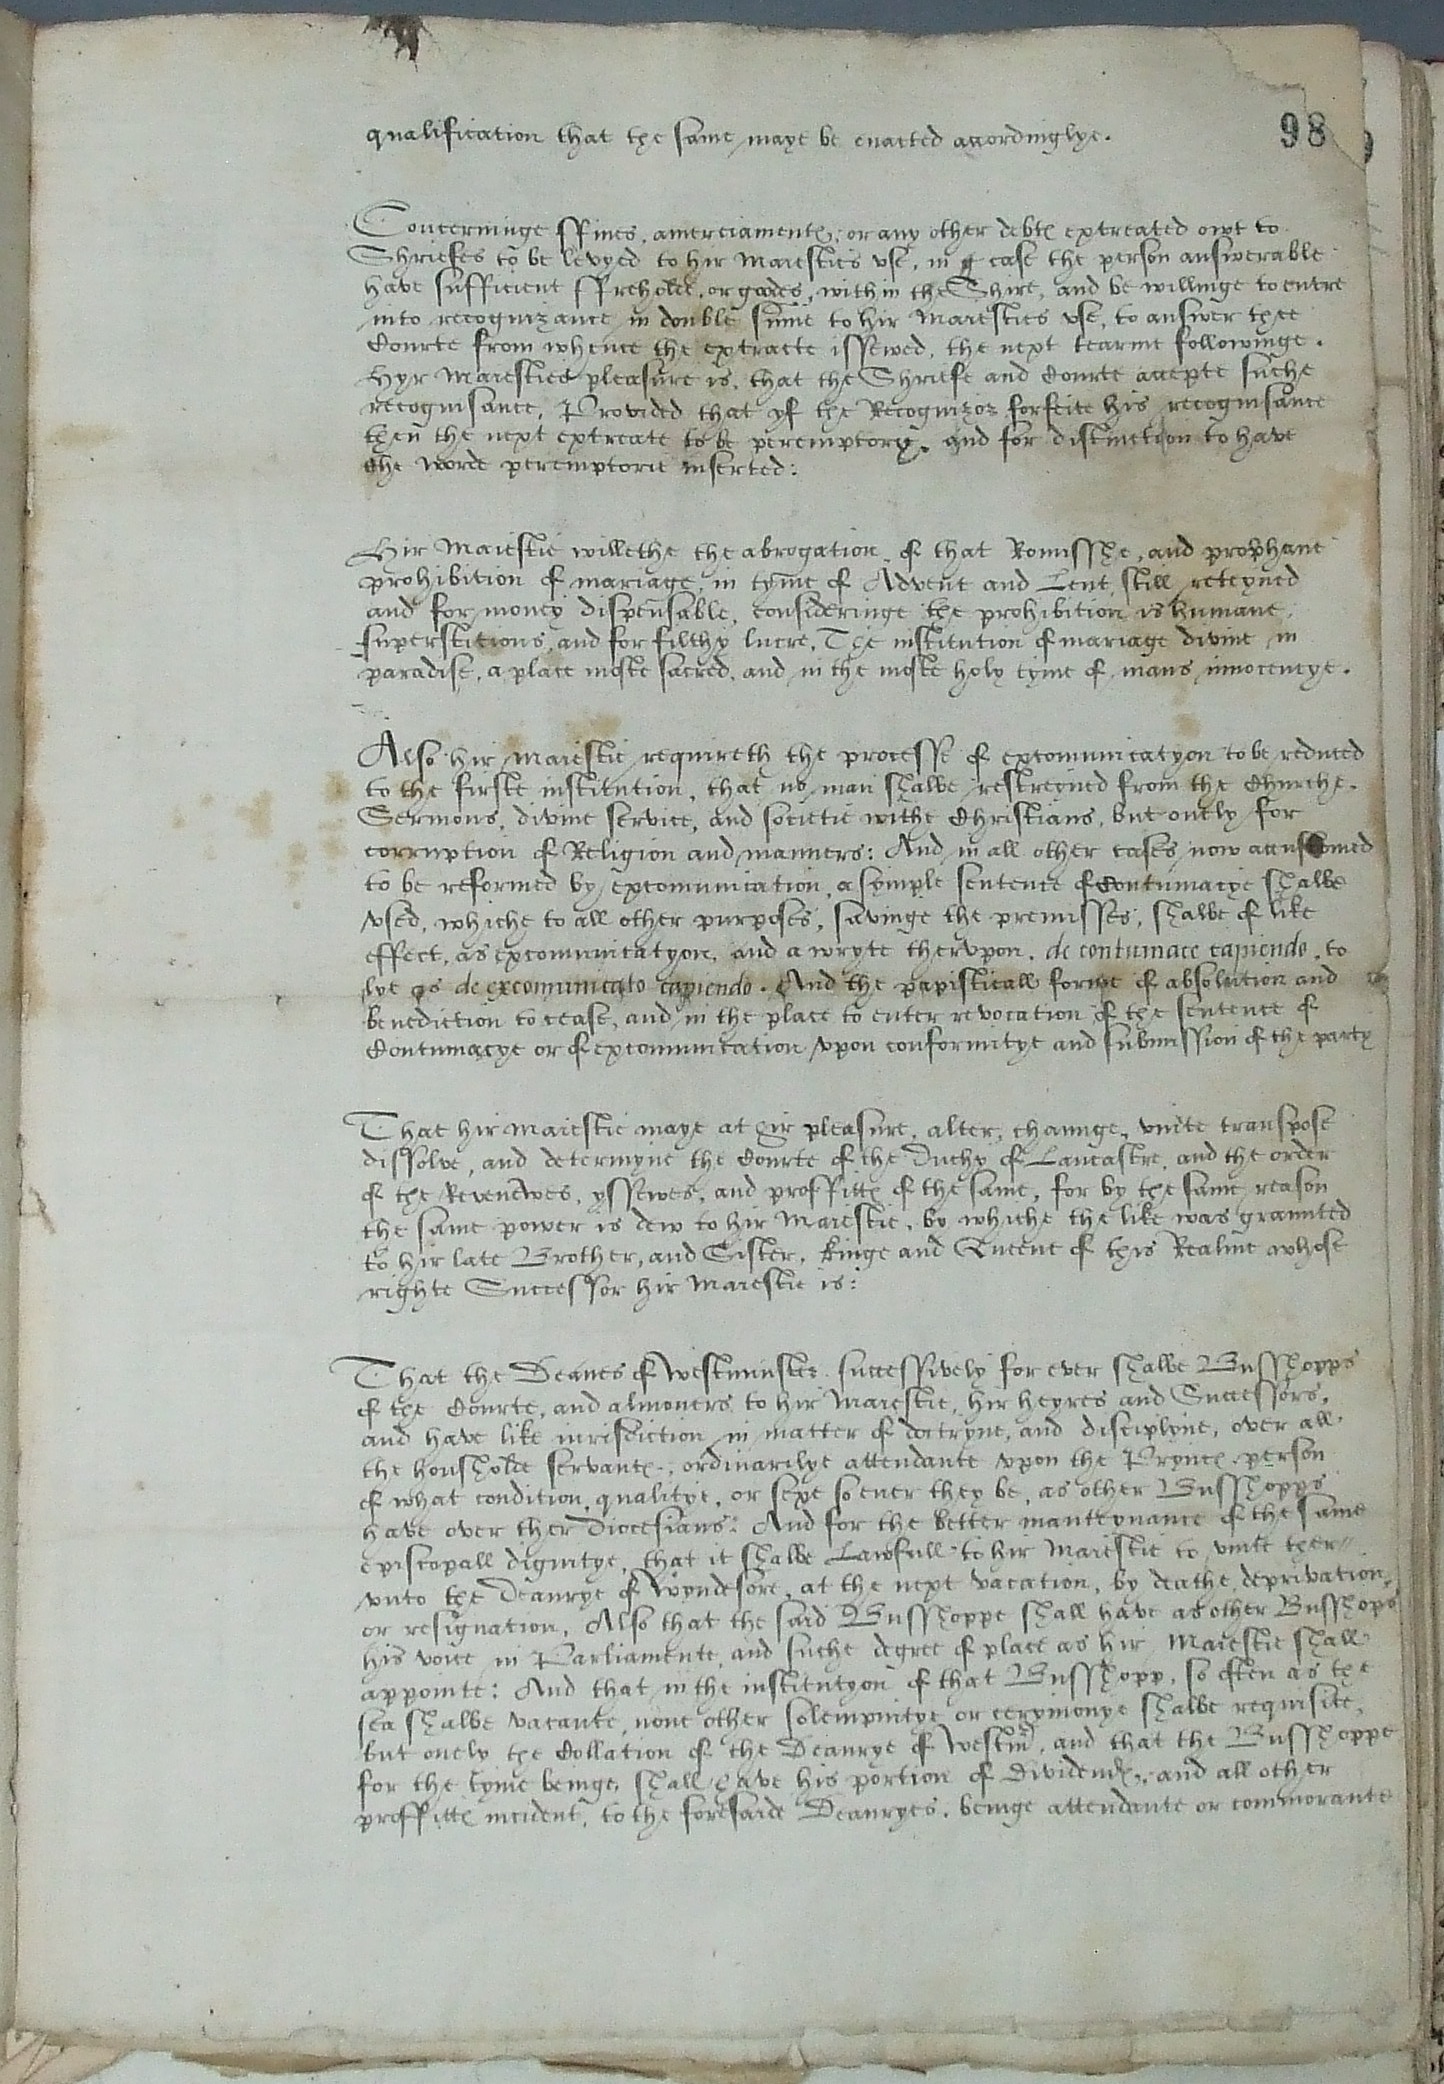 98
qualification that the same maye be enacted accordinglye.
Concerninge ffines, amerciamentes, or any other debtes extreated owt to
Shriefes to be levyed to hir Maiesties vse, in case the person answerable
have sufficient ffreholde, or goodes, within the Shire, and be willinge to entre
into recognizance in double sume to hir Maiesties vse, to answer thee
Courte from whence the extracte issewed, the next tearme followinge.
Hyr Maiesties pleasure is, that the Shriefe and Courte accepte suche
recognisance, Provided that yf the Recognizor forfeite his recognisance
then the next extreate to be peremptory. and for distinction to have
the worde peremptorie inserted:
Hir Maiestie willethe the abrogation of that Romisshe, and prophane
prohibition of mariage, in tyme of Advent and Lent, still reteyned
and for money dispensable, consideringe the prohibition is humane,
superstitious, and for filthy lucre, The institution of mariage divine in
paradise, a place moste sacred, and in the moste holy tyme of mans innocencye.
Also hir Maiestie requireth the processe of excomunicatyon to be reduced
to the firste institution, that no man shalbe restreyned from the Churche.
Sermons, divine service, and societie withe Christians, but onely for
corruption of Religion and manners: And in all other cases now accustomed
to be reformed by excomunication, a symple sentence of Contumacye shalbe
vsed, whiche to all other purposes, savinge the premisses, shalbe of like
effect, as excomunicatyon, and a wryte thervpon, de contumace capiendo, to
lye as de excomunicato capiendo. And the papisticall forme of absolution and
benediction to cease, and in the place to enter revocation of the sentence of
Contumacye or of excomunication vpon conformitye and submission of the party
That hir Maiestie maye at hir pleasure, alter, chaunge, vnite transpose
dissolve, and determyne the Courte of the Duchy of Lancastre, and the order
of the Revenewes, yssewes, and proffittes of the same, for by the same reason
the same power is dew to hir Maiestie, by whiche the like was graunted
to hir late Brother, and Sister, kinge and Queene of this Realme whose
righte Successor hir Maiestie is:
That the Deanes of Westminster successively for ever shalbe Busshopps
of the Courte, and almoners to hir Maiestie, hir heyres and Successors,
and have like iurisdiction in matter of doctryne, and disciplyne, over all
the housholde servantes, ordinarilye attendante vpon the Prynces person
of what condition, qualitye, or sexe so ever they be, as other Busshopps
have over ther diocesians: And for the better manteynance of the same
episcopall dignitye, that it shalbe Lawfull to hir Maiestie to vnite ther//
vnto the Deanrye of Wyndesore, at the next vacation, by deathe, deprivation,
or resignation, Also that the said Busshoppe shall have as other Busshops
his voice in Parliamente, and suche degree of place as hir Maiestie shall
appointe: And that in the institutyon of that Busshopp, so often as the
sea shalbe vacante, none other solempnitye or cerymonye shalbe requisite,
but onely the Collation of the Deanrye of Westmr, and that the Busshoppe
for the tyme beinge, shall have his portion of Dividendes, and all other
proffittes incident, to the foresaide Deanryes, beinge attendante or commorante